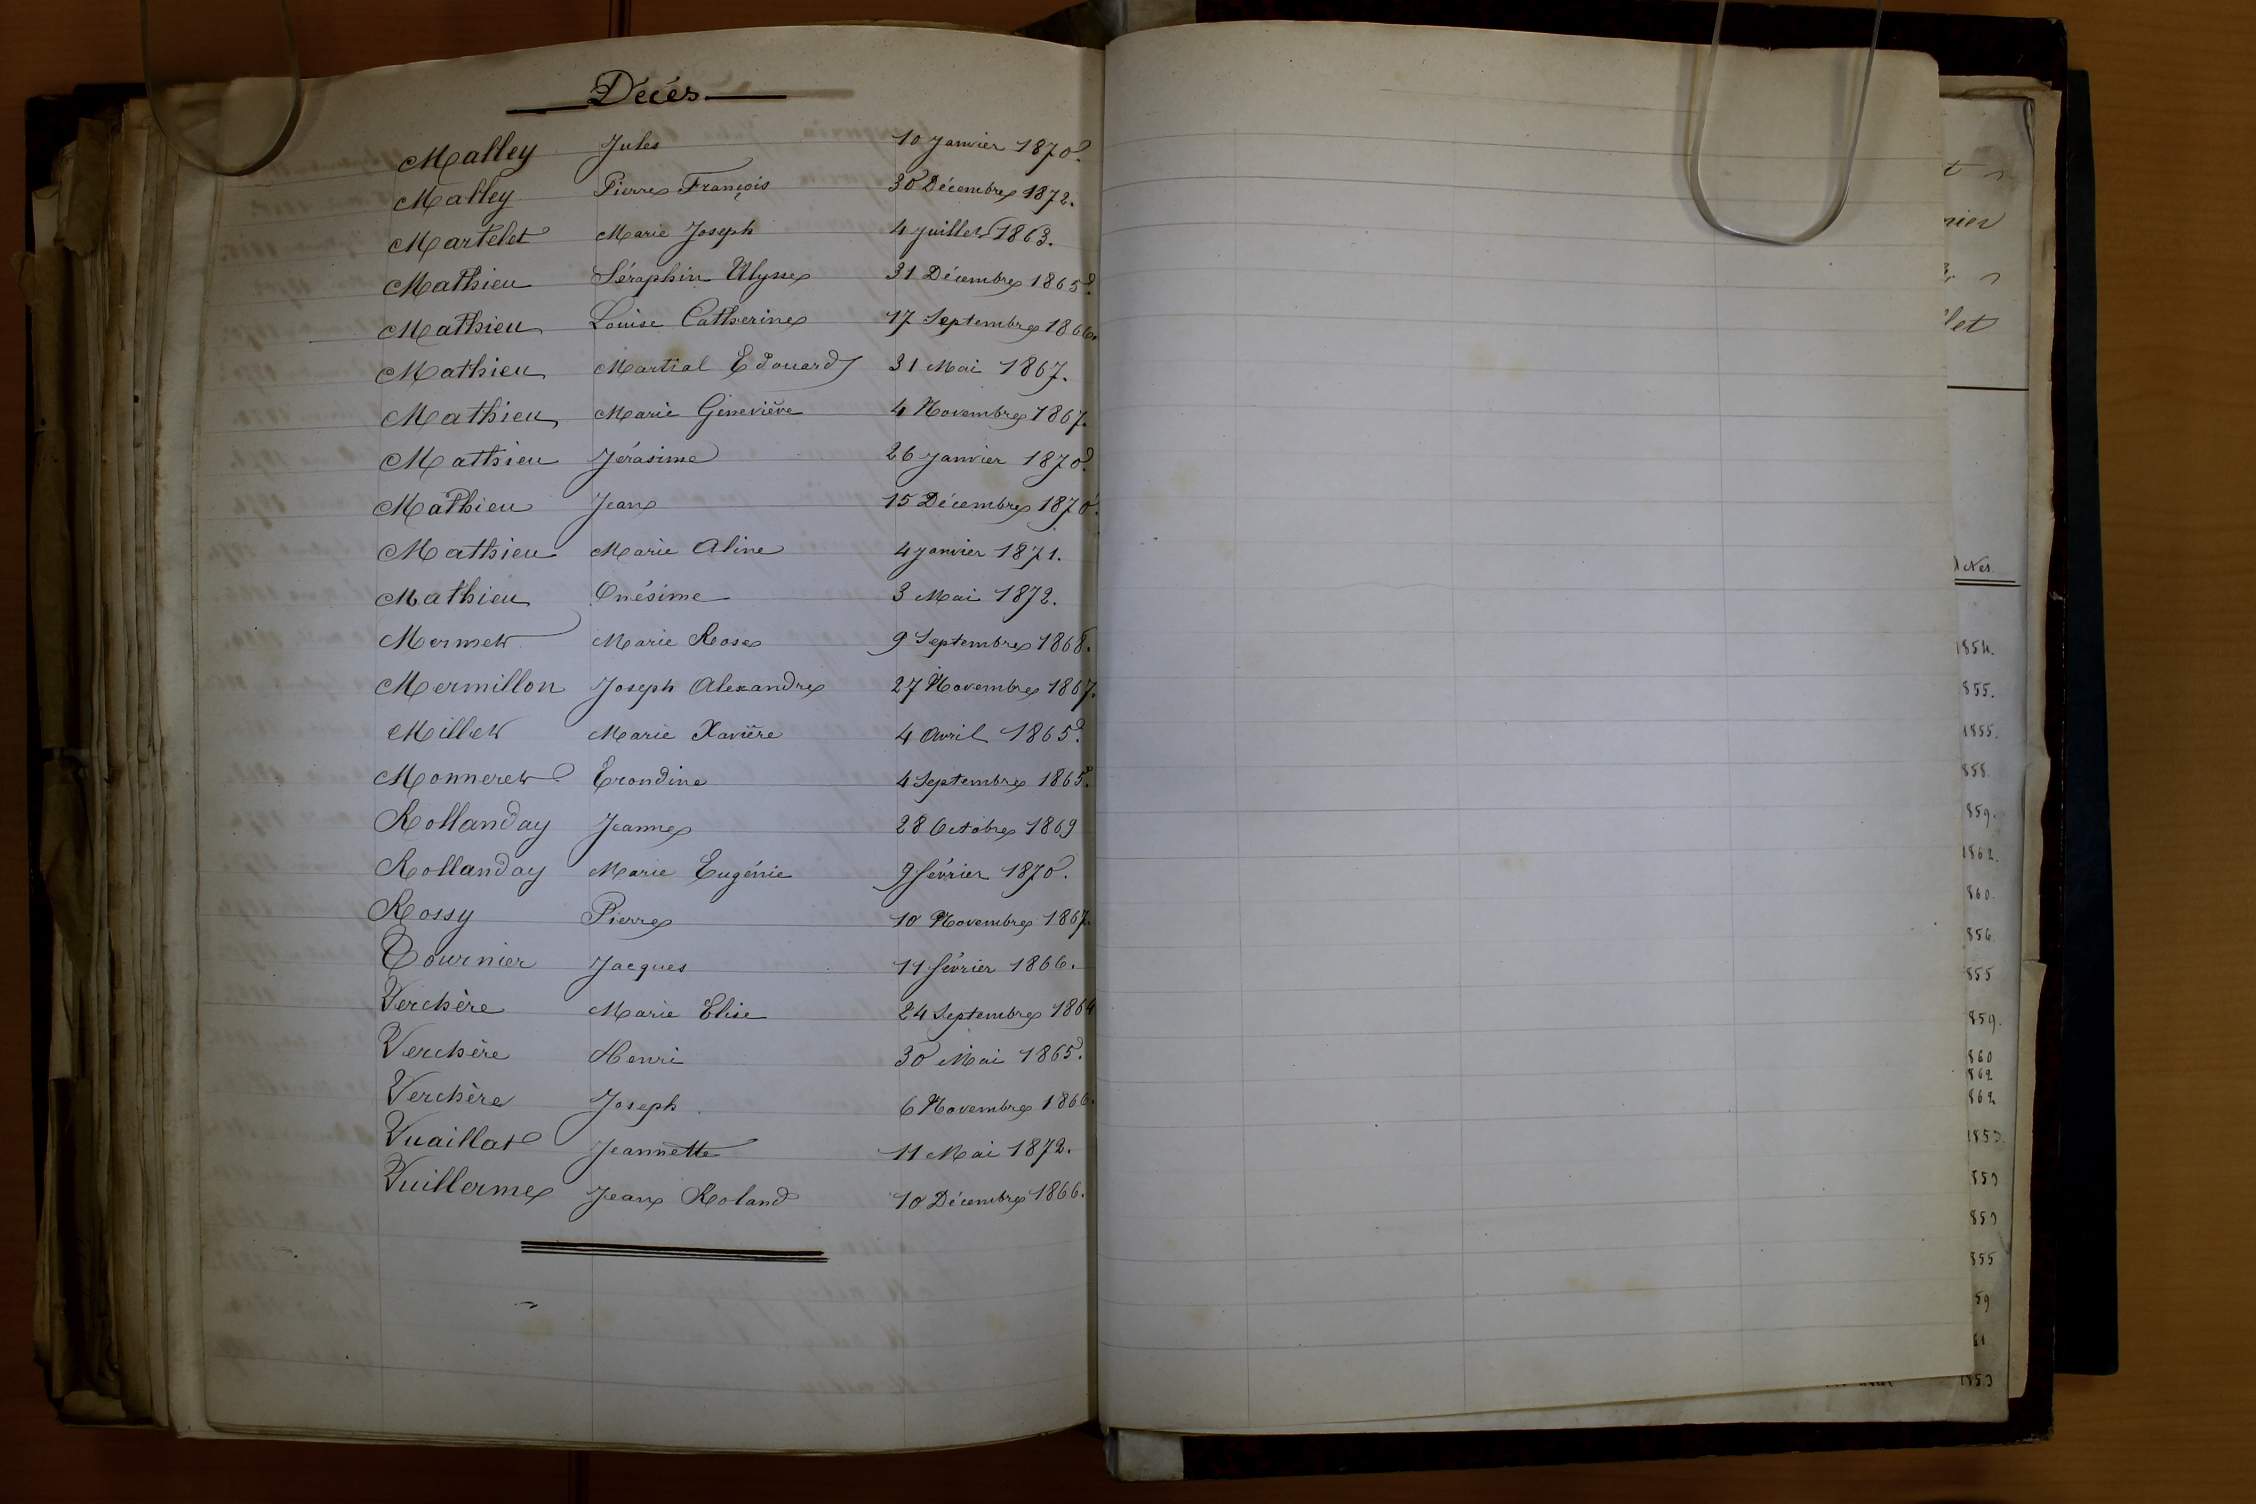 Décès
Malley Jules 10 Janvier 1870.
Malley Pierre François 30 Décembre 1872.
Martelet Marie Joseph 4 Juillet 1863.
Mathieu Séraphin Ulysse 31 Décembre 1865.
Mathieu Louise Catherine 17 Septembre 1866.
Mathieu Martial Edouard 31 Mai 1867.
Mathieu Marie Geneviève 4 Novembre 1867.
Mathieu Jérasime 26 Janvier 1870.
Mathieu Jean 15 Décembre 1870.
Mathieu Marie Aline 4 Janvier 1871.
Mathieu Onésime 3 Mai 1872.
Mermet Marie Rose 9 Septembre 1868.
Mermillon Joseph Alexandre 27 Novembre 1867.
Millet Marie Xavière 4 Avril 1865.
Monneret Erondine 4 Septembre 1865.
Rollanday Jeanne 28 Octobre 1869
Rollanday Marie Eugénie 9 février 1870.
Rossy Pierre 10 Novembre 1867.
Tournier Jacques 11 février 1866.
Verchère Marie Elise 24 Septembre 1864
Verchère Henri 30 Mai 1865.
Verchère Joseph 6 Novembre 1866.
Vuaillat Jeannette 11 Mai 1872.
Vuillerme Jean Roland 10 Décembre 1866.
nier
let
1854.
855.
1855.
858.
859.
1862.
860.
856
855
859.
860
862
862
853
853
855
59
61
1853